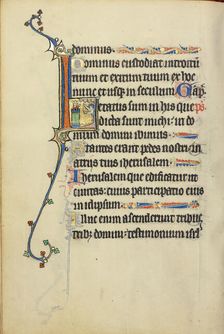 dominus.
Dominus custodiat introitū
tuum et exitum tuum ex hoc
nunc et usq; in seculum. Cāp̄.
Letatus sum in hijs que ps̄
dicta sunt michi: in do
mum domini ibimus.
Stantes erant pedes nostri: in
atrijs tuis iherusalem.
Iherusalem que edificatur ut
ciuitas: cuius participatio eius
in idipsum.
Illuc enim ascenderunt tribus
tribꝫ domini: testimonium isrl̄